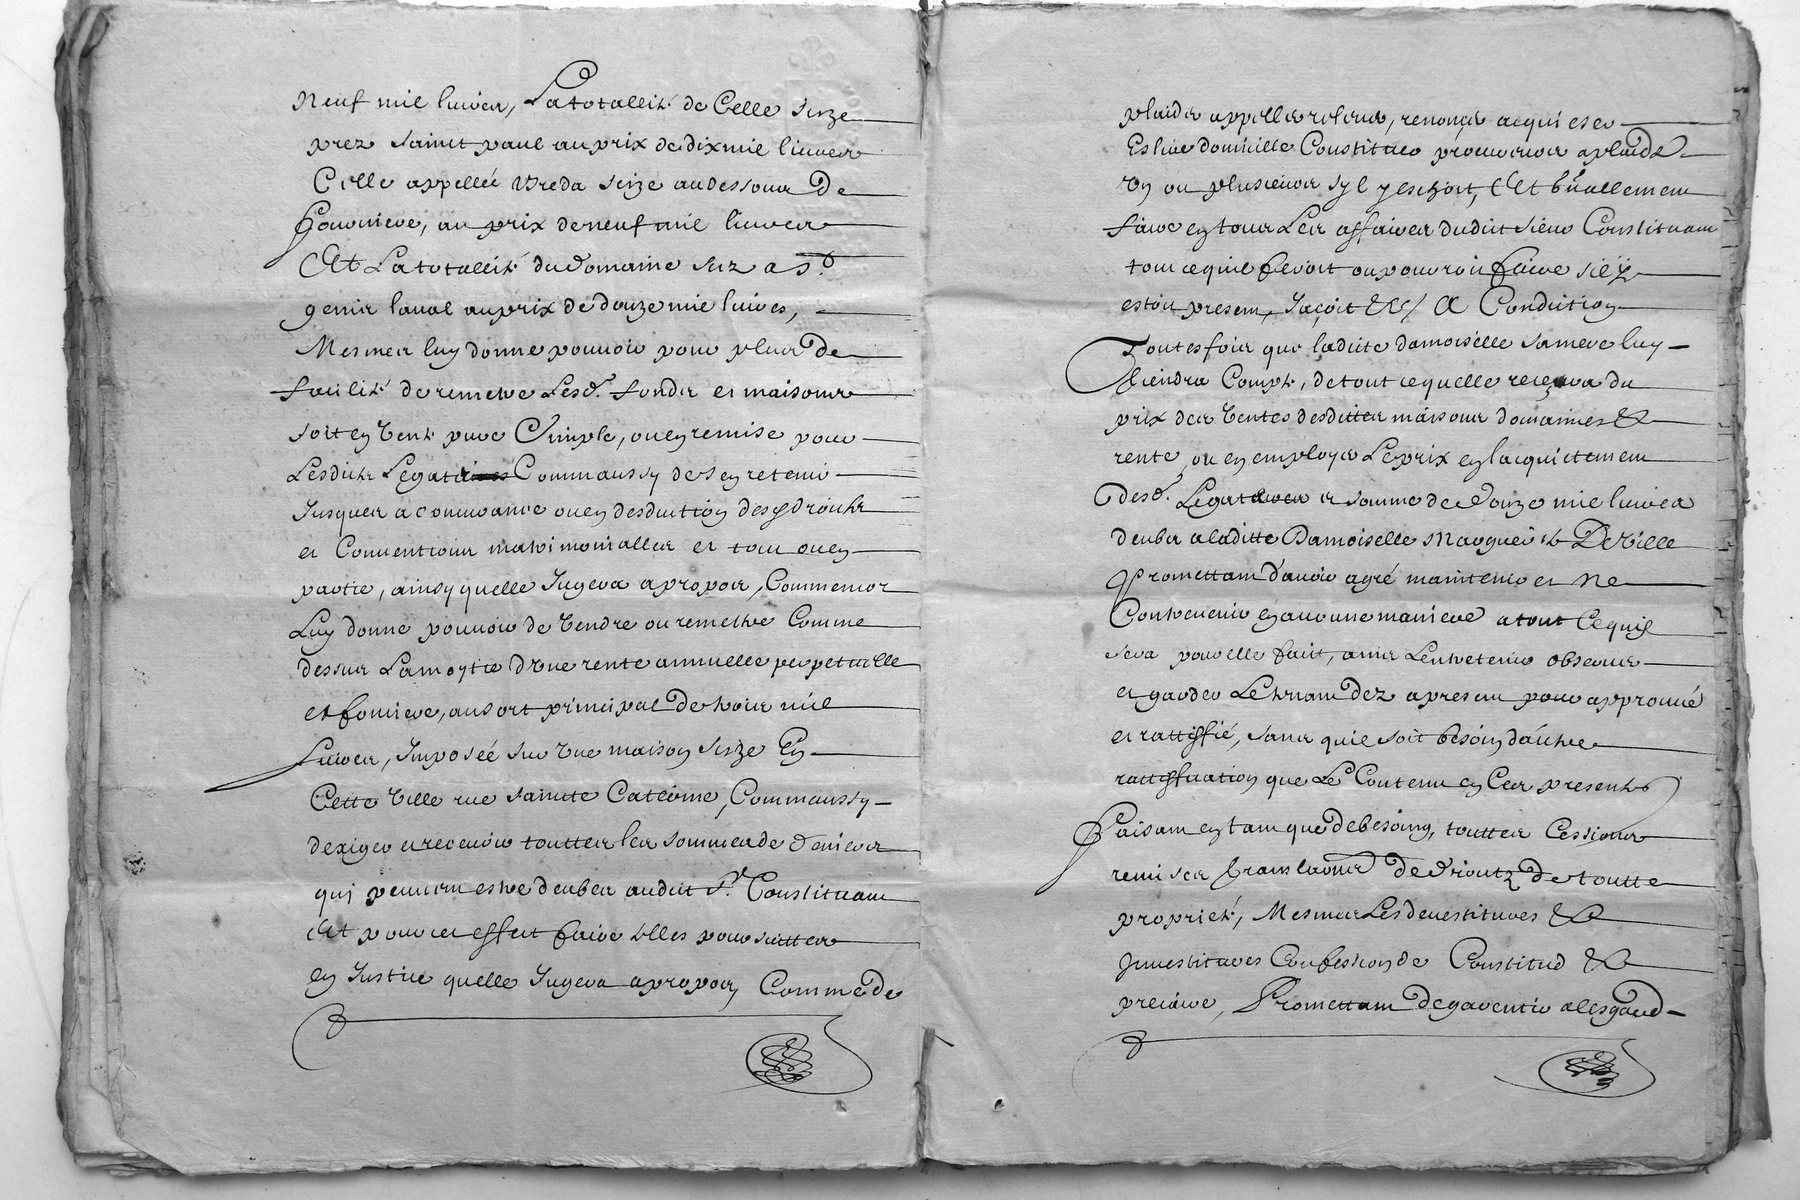 Neuf mil livres, La totallité de Celle size
prez Sainct paul au prix de dix mil livres
Celle appellée Breda size audessoubs de
au prix de neuf mil livres
Et La totallité du domaine siz a St
genis laval au prix de douze mil livres,
Mesmes luy donne pouvoir pour plus de
facilité de remetre Lesd. fonds et maisons
soit en Vente pure Simple, ou en remise pour
Lesdits Legataires Comm'aussy de s'en retenir
Jusques a concurance ou en desduction des droicts
et Conventions matrimonialles et tout ou en
partie, ainsy quelle Jugera a propos, Comme
Luy donne pouvoir de Vendre ou remettre Comme
dessus La moytié d'une rente annuelle perpetuelle
et fonciere, au sort principal de trois mil
Livres, Imposée sur Une maison size En
Cette Ville rue Saincte Caterine, Comm'aussy
d'exiger et recevoir touttes les sommes de deniers
qui peuvent estre deubes audit Sr. Constituant
Et pour cet effect faire telles poursuittes
en Justice quelle Jugera a propos, Comme de
plaider appeller relever, renoncer acquiescer
Eslire domicille Constituer procureur a plaids
Un ou plusieurs s'il y eschoit, Et
faire en tous Les affaires dudit sieur Constituant
tout ce quil feroit ou pourroit faire s'il y
estoit present, Jaçoit &c/ A Condition
Toutesfois que ladite damoiselle sa mere luy
tiendra Compte, de tout ce quelle recevra du
prix des Ventes desdittes maisons domaines &
rente, ou en employer Le prix en l'acquictement
desd. Legataires et somme de douze mil livres
deube a laditte Damoiselle Marguerite DeVille
Promettant d'avoir agré maintenir et Ne
Contrevenir en aucune maniere a tout Ce quil
sera pour elle fait, ains L'entretenir observer
et garder Le tenant dez apresent pour approuvé
et rattiffié, sans quil soit besoin d'autre
rattiffication que Le Contenu en Ces presentes
Faisant en tant que de besoing, touttes Cessions
remises translations de droictz de toutte
proprieté, Mesmes Les devestitures &
Investitures Confession de Constitud &
precaire, Promettant de garentir a l'esgard